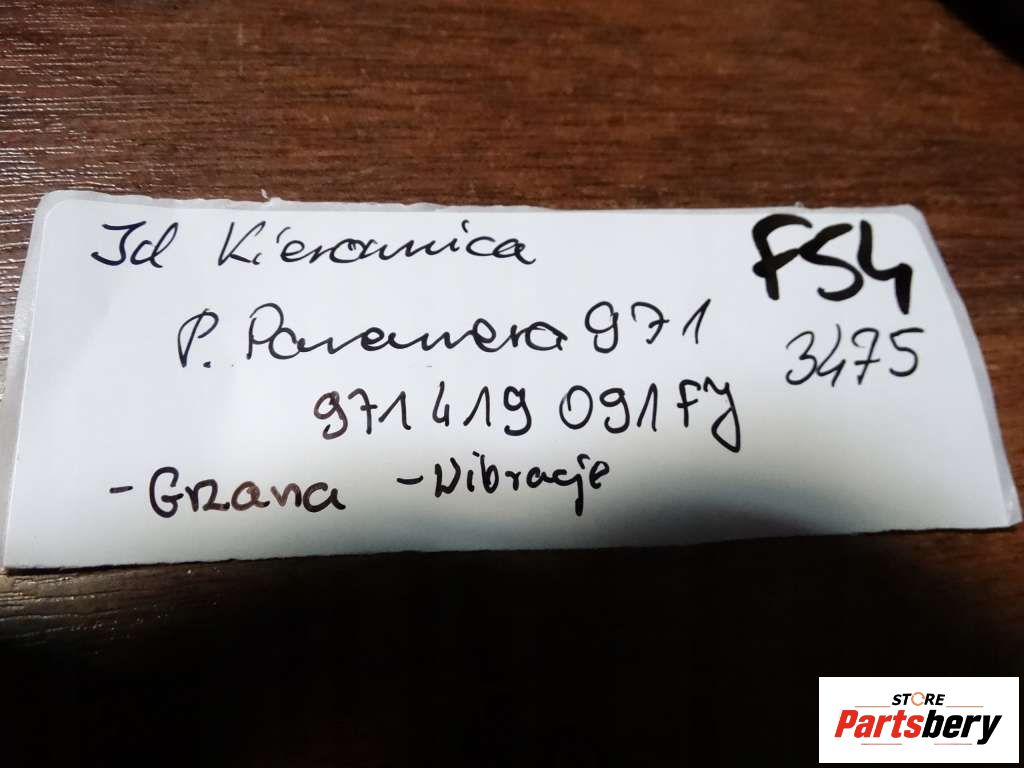 Id Kierownica
F54
P. Panamera 971
3475
971 419 091 FJ
- Grzana - Wibracje
STORE
Partsbery